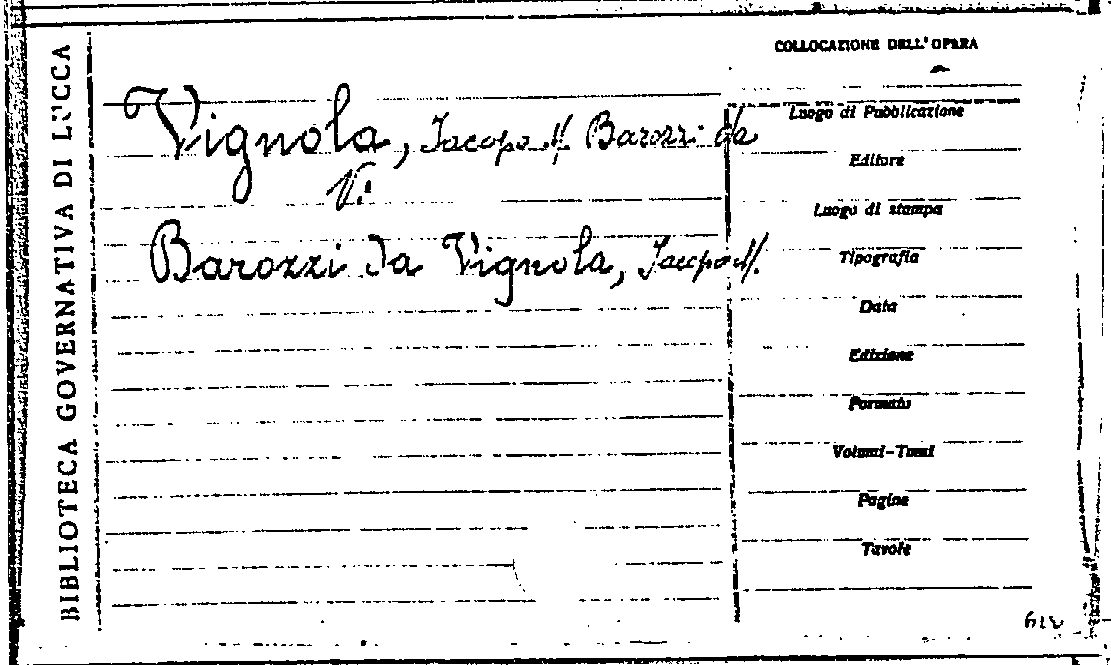 BIBLIOTECA GOVERNATIVA DI LUCCA
COLLOCAZIONE DELL'OPERA
Vignola, Jacopo Barozzi da
V.
Barozzi da Vignola, Jacopo
Luogo di Pubblicazione
Editore
Luogo di stampa
Tipografia
Data
Edizione
Formato
Volumi-Tomi
Pagine
Tavole